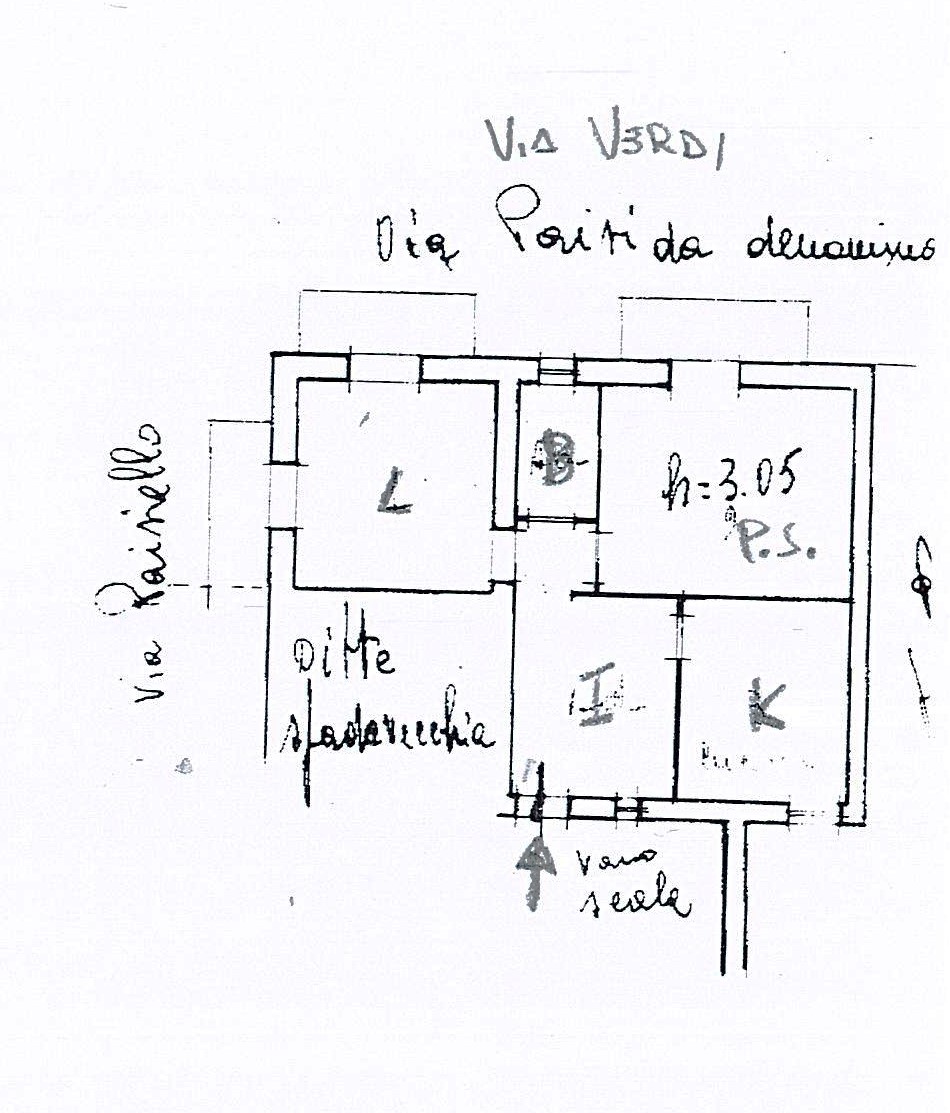 VIA VERDI
Via Poiti da denominare
Via Paisiello
L
B
h=3.05
P.S.
Ditte
Spadavecchia
I
K
vano
scala